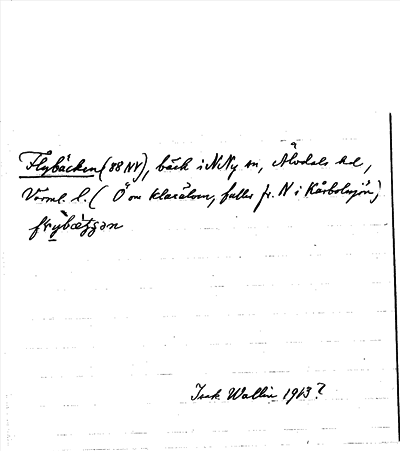 Flybäcken (88 NV), bäck i N Ny sn, Älvdals hd,
Värml. l. (Ö om Klarälven, faller fr. N i Kårbolssjön)
Isak Wallin 1913?